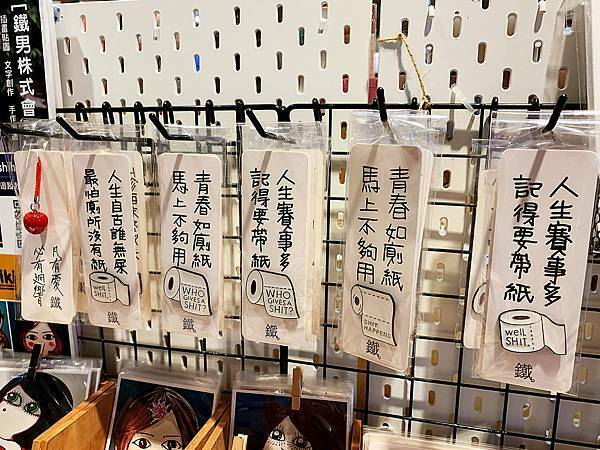 [鐵男株式會
插畫貼圖、文字創作 手作
必有迴響
鐵
人生自古誰無尿
最怕廁所沒有紙
WELL
SHIT.
鐵
青春如廁紙
馬上不夠用
WHO
GIVES A
SHIT?
鐵
人生賽事多
記得要帶紙
WHO
GIVES A
SHIT?
鐵
青春如廁紙
馬上不夠用
SHIT
HAPPENS
鐵
人生賽事多
記得要帶紙
well
SHIT.
鐵